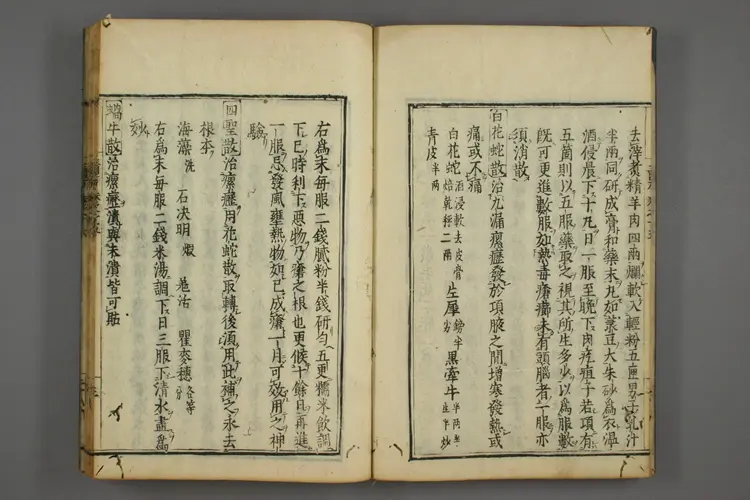 去滓煮精羊肉四兩爛軟入輕粉五匣男子乳汁
半兩同研成膏和藥末丸如菉豆大朱砂爲衣溫
酒侵晨下十九日一服至晚下肉疙疸子若項有
五箇則以五服藥取之視其所生多少以爲服數
既可更進數服如熱毒癰癤未有頭腦者一服亦
須消散
白花蛇散治九漏瘰癧發於項腋之間增寒發熱或
痛或不痛
白花蛇 酒浸軟去皮骨焙乾秤二兩 生犀 鎊半兩 黑牽牛 半兩半生半炒
青皮 半兩
右爲末每服二錢膩粉半錢研勻五更糯米飲調
下巳時利下惡物乃瘡之根也更候十餘日再進
一服忌發風壅熱物如已成瘡一月可效用之神
驗
四聖散治瘰癧用花蛇散取轉後須用此補之永去
根本
海藻 洗 石決明 煅 羌活 瞿麥穗 各等分
右爲末每服二錢米湯調下日三服下清水盡爲
妙
蝸牛散治瘰癧潰與未潰皆可貼